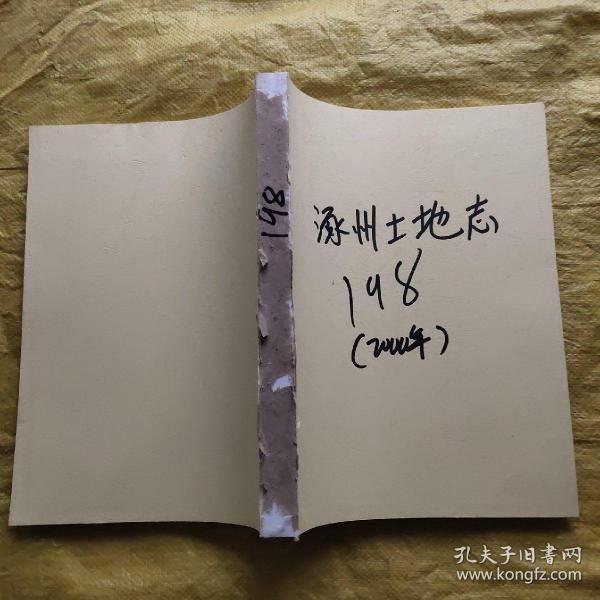 198
涿州土地志
198
(2000年)
孔夫子旧書网
www.kongfz.com